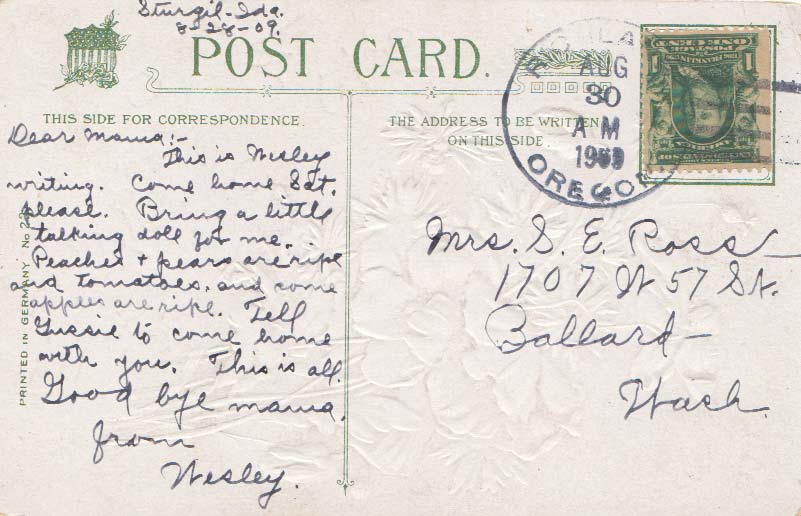 Sturgil-Ida.
8-28-09.
POST CARD.
THIS SIDE FOR CORRESPONDENCE.
Dear Mama:-
This is Wesley
writing. Come home Sat.
please. Bring a little
talking doll for me.
Peaches + pears are ripe
and tomatoes, and some
apples are ripe. Tell
Gussie to come home
with you. This is all.
Good bye mama.
from
Wesley.
PRINTED IN GERMANY No
THE ADDRESS TO BE WRITTEN
ON THIS SIDE.
AUG
30
AM
OREGON
Mrs. S. E. Ross
1707 W 57 St.
Ballard-
Wash.